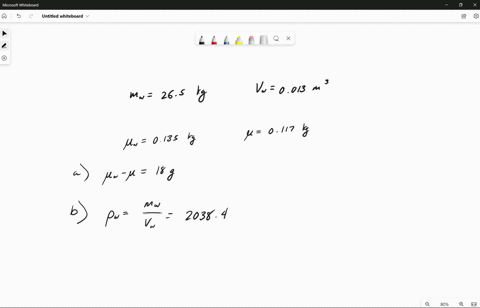 Microsoft Whiteboard
Untitled whiteboard
m_w = 26.5 kg
V_w = 0.013 m^3
μ_w = 0.135 kg
μ = 0.117 kg
a) μ_w - μ = 18 g
b) ρ_w = m_w / V_w = 2038.4
80%